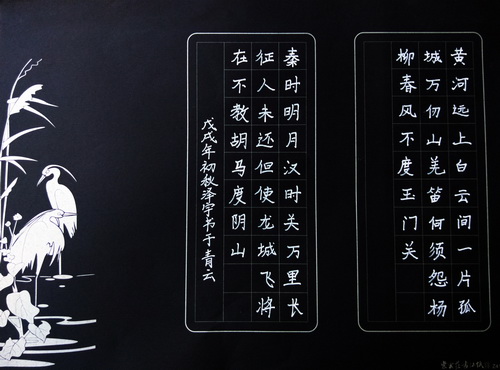 黄河远上白云间一片孤
城万仞山羌笛何须怨杨
柳春风不度玉门关
秦时明月汉时关万里长
征人未还但使龙城飞将
在不教胡马度阴山
戊戌年初秋泽宇书于青云